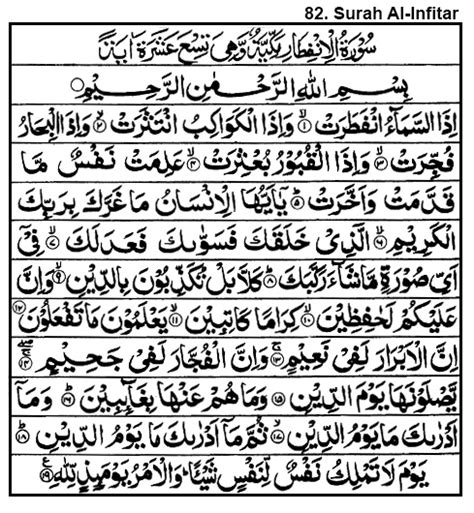 82. Surah Al-Infitar
سُوْرَةُ الْاِنْفِطَارِ مَكِّيَّةٌ وَّهِيَ تِسْعَ عَشَرَةَ اٰيَةً
بِسْمِ اللهِ الرَّحْمٰنِ الرَّحِيْمِ
اِذَا السَّمَآءُ انْفَطَرَتْ ۙ﴿۱﴾ وَاِذَا الْكَوَاكِبُ انْتَثَرَتْ ۙ﴿۲﴾ وَاِذَا الْبِحَارُ
فُجِّرَتْ ۙ﴿۳﴾ وَاِذَا الْقُبُوْرُ بُعْثِرَتْ ۙ﴿۴﴾ عَلِمَتْ نَفْسٌ مَّا
قَدَّمَتْ وَاَخَّرَتْ ؕ﴿۵﴾ يٰۤاَيُّهَا الْاِنْسَانُ مَا غَرَّكَ بِرَبِّكَ
الْكَرِيْمِ ۙ﴿۶﴾ الَّذِيْ خَلَقَكَ فَسَوّٰىكَ فَعَدَلَكَ ۙ﴿۷﴾ فِيْۤ
اَيِّ صُوْرَةٍ مَّا شَآءَ رَكَّبَكَ ؕ﴿۸﴾ كَلَّا بَلْ تُكَذِّبُوْنَ بِالدِّيْنِ ۙ﴿۹﴾ وَاِنَّ
عَلَيْكُمْ لَحٰفِظِيْنَ ۙ﴿۱۰﴾ كِرَامًا كَاتِبِيْنَ ۙ﴿۱۱﴾ يَعْلَمُوْنَ مَا تَفْعَلُوْنَ ﴿۱۲﴾
اِنَّ الْاَبْرَارَ لَفِيْ نَعِيْمٍ ۚ﴿۱۳﴾ وَاِنَّ الْفُجَّارَ لَفِيْ جَحِيْمٍ ۚۖ﴿۱۴﴾
يَّصْلَوْنَهَا يَوْمَ الدِّيْنِ ﴿۱۵﴾ وَمَا هُمْ عَنْهَا بِغَآئِبِيْنَ ؕ﴿۱۶﴾ وَمَاۤ
اَدْرٰىكَ مَا يَوْمُ الدِّيْنِ ۙ﴿۱۷﴾ ثُمَّ مَاۤ اَدْرٰىكَ مَا يَوْمُ الدِّيْنِ ؕ﴿۱۸﴾
يَوْمَ لَا تَمْلِكُ نَفْسٌ لِّنَفْسٍ شَيْـًٔا ؕ وَالْاَمْرُ يَوْمَئِذٍ لِّلّٰهِ ﴿۱۹﴾